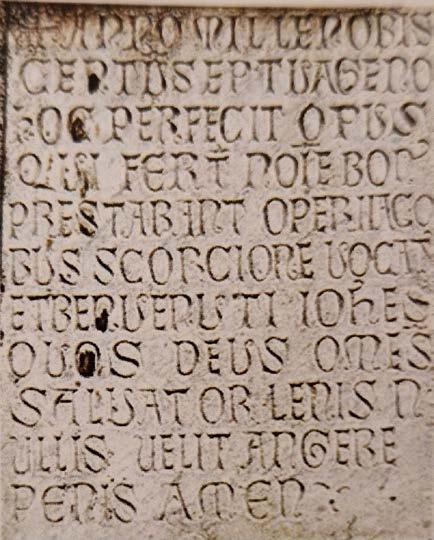 + ANNO MILLENO BIS
CENTUSEPTUAGENO
HOC PERFECIT OPUS
QUISI FERT NOIE BON
PRESTABANT OPERIIACO
BUS SCORCIONE UOCAT
ETBENUENUTI IOHES
QUOS DEUS OMES
SALUATOR LENIS N
ULLIS UELIT ANGERE
PENIS AMEN